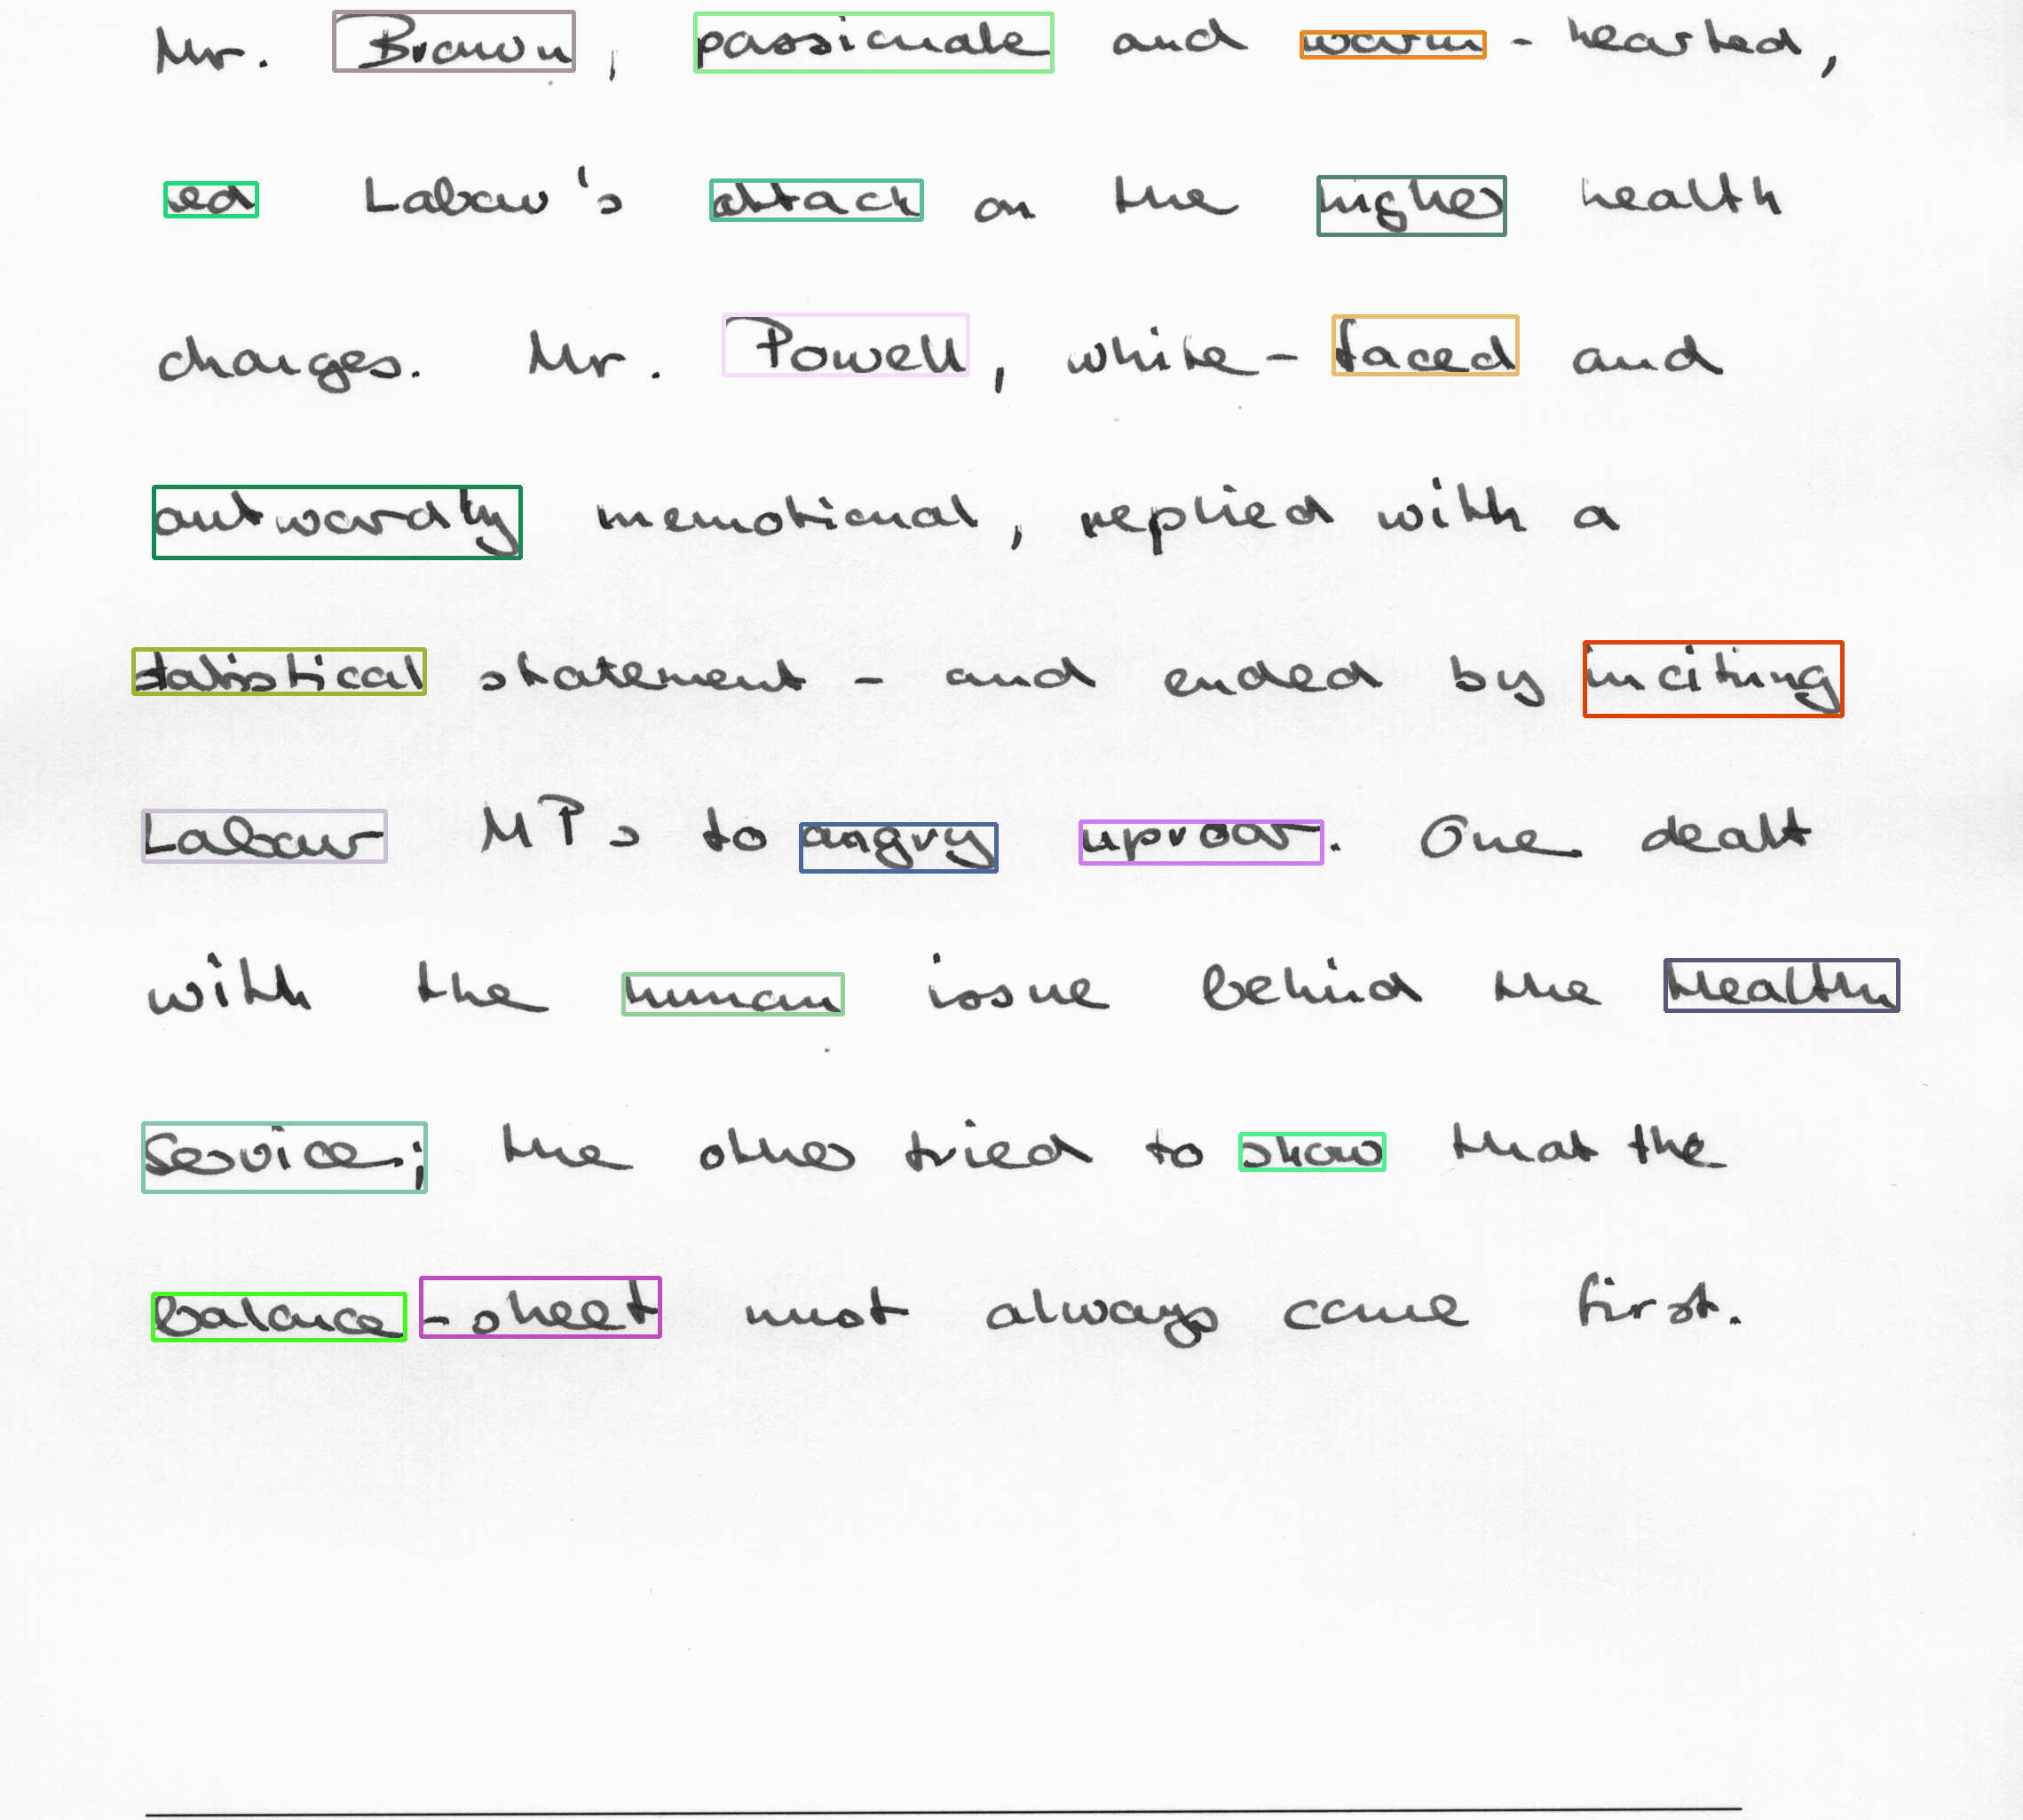 Mr. Brown, passionate and warm-hearted,
ed Labour's attack on the higher health
charges. Mr. Powell, white-faced and
outwardly unemotional, replied with a
statistical statement - and ended by inciting
Labour MPs to angry uproar. One dealt
with the human issue behind the Health
Service; the other tried to show that the
balance-sheet must always come first.